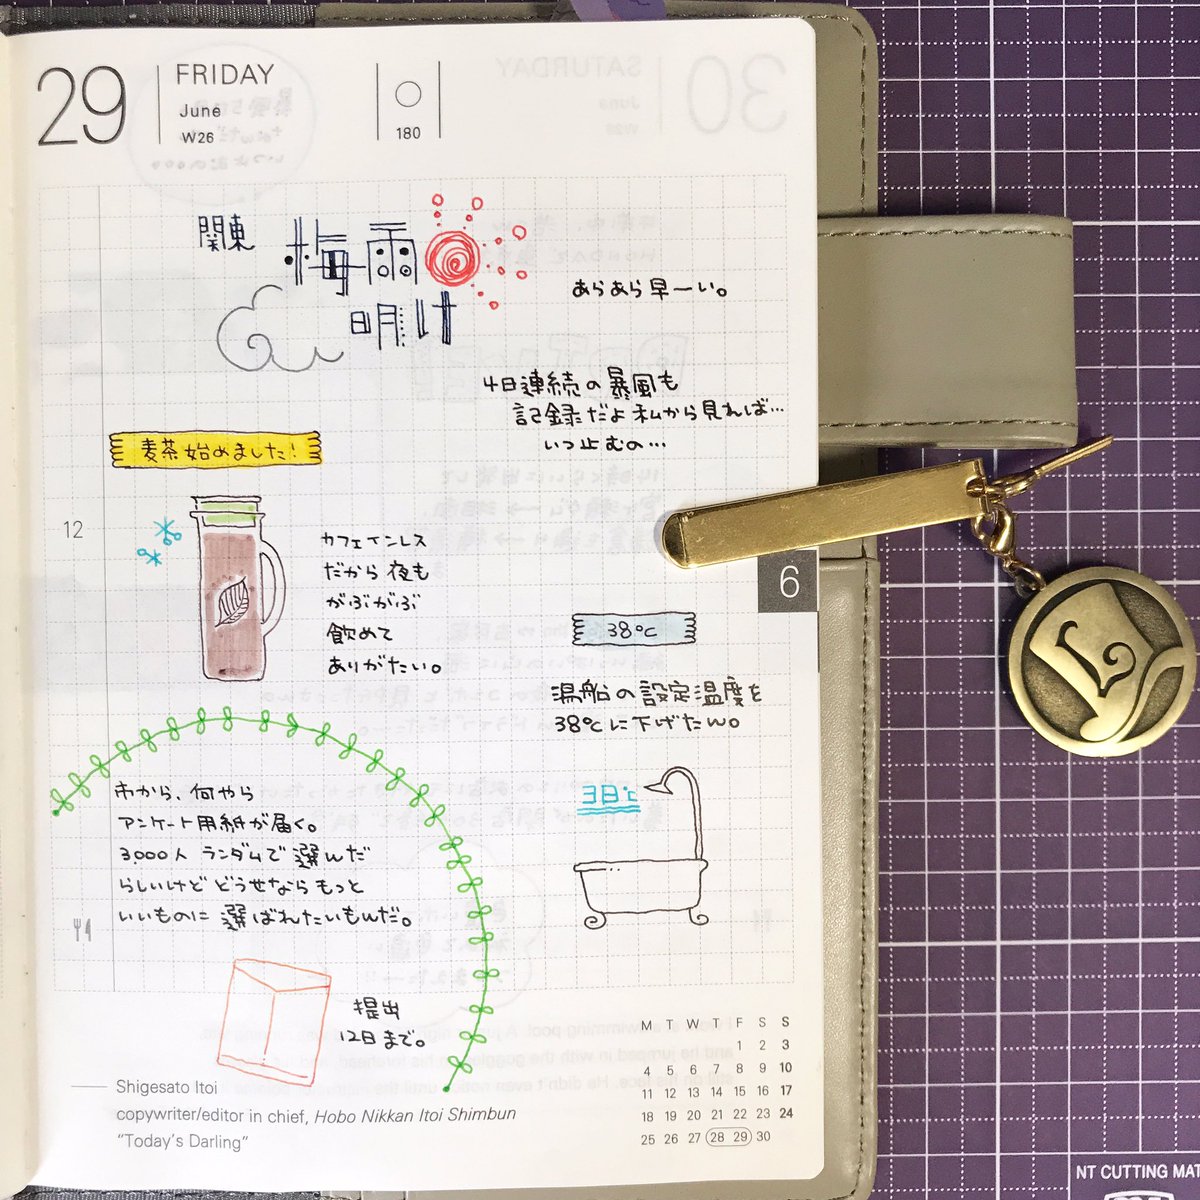 29
FRIDAY
June
W26
180
関東
梅雨
明け
あらあら早ーい。
4日連続の暴風も
記録だよ 私から見れば…
いつ止むの…
麦茶始めました!
12
カフェインレス
だから 夜も
がぶがぶ
飲めて
ありがたい。
6
38℃
湯船の設定温度を
38℃に下げたん。
3日℃
市から、何やら
アンケート用紙が届く。
3,000人 ランダムで 選んだ
らしいけど どうせなら もっと
いいものに 選ばれたいもんだ。
提出
12日まで。
Shigesato Itoi
copywriter/editor in chief, Hobo Nikkan Itoi Shimbun
"Today's Darling"
M T W T F S S
1 2 3
4 5 6 7 8 9 10
11 12 13 14 15 16 17
18 19 20 21 22 23 24
25 26 27 28 29 30
L
NT CUTTING MA